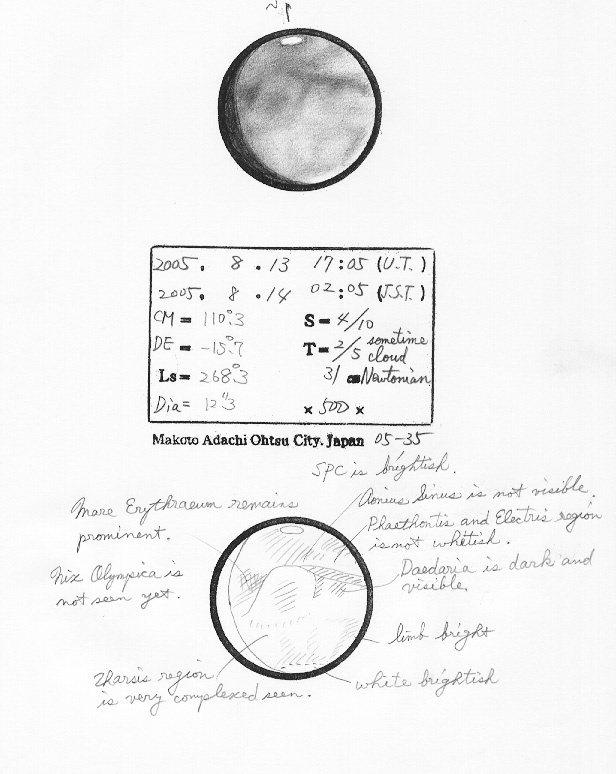 2005. 8 .13 17:05 (U.T.)
2005. 8 .14 02:05 (J.S.T.)
CM = 110°.3 S = 4/10
DE = -15°.7 T = 2/5 sometime cloud
Ls = 268°.3 31 cm Newtonian
Dia = 12".3 × 500 ×
Makoto Adachi Ohtsu City. Japan 05-35
SPC is brightish.
Aonius Sinus is not visible.
Mare Erythraeum remains
prominent.
Phaethontis and Electris region
is not whitish.
Nix Olympica is
not seen yet.
Daedaria is dark and
visible.
limb bright
Tharsis region
is very complexed seen.
white brightish